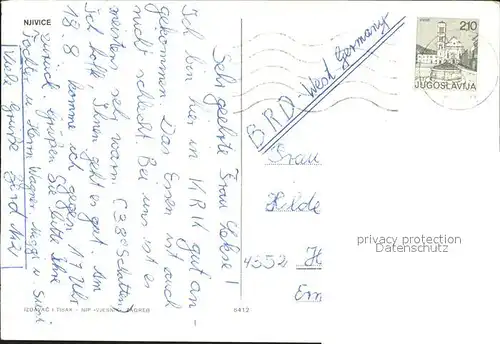 NJIVICE
Sehr geehrte Frau
Ich bin hier in KRK gut an-
gekommen Das Essen ist auch
nicht schlecht. Bei uns ist es
meistens sehr warm. (38° Schatten)
Ich hoffe, Ihnen geht es gut. Am
18.8 komme ich gegen 17 Uhr
zurück grüßen Sie bitte Ihre
Tochter u. Herrn Wagner. u. Susi
Viele Grüße
BRD. West Germany
2.10
JUGOSLAVIJA
Frau
Hilde
4352 H
Em
privacy protection
Datenschutz
IZDAVAČ I TISAK - NIP »VJESNIK« ZAGREB
6412